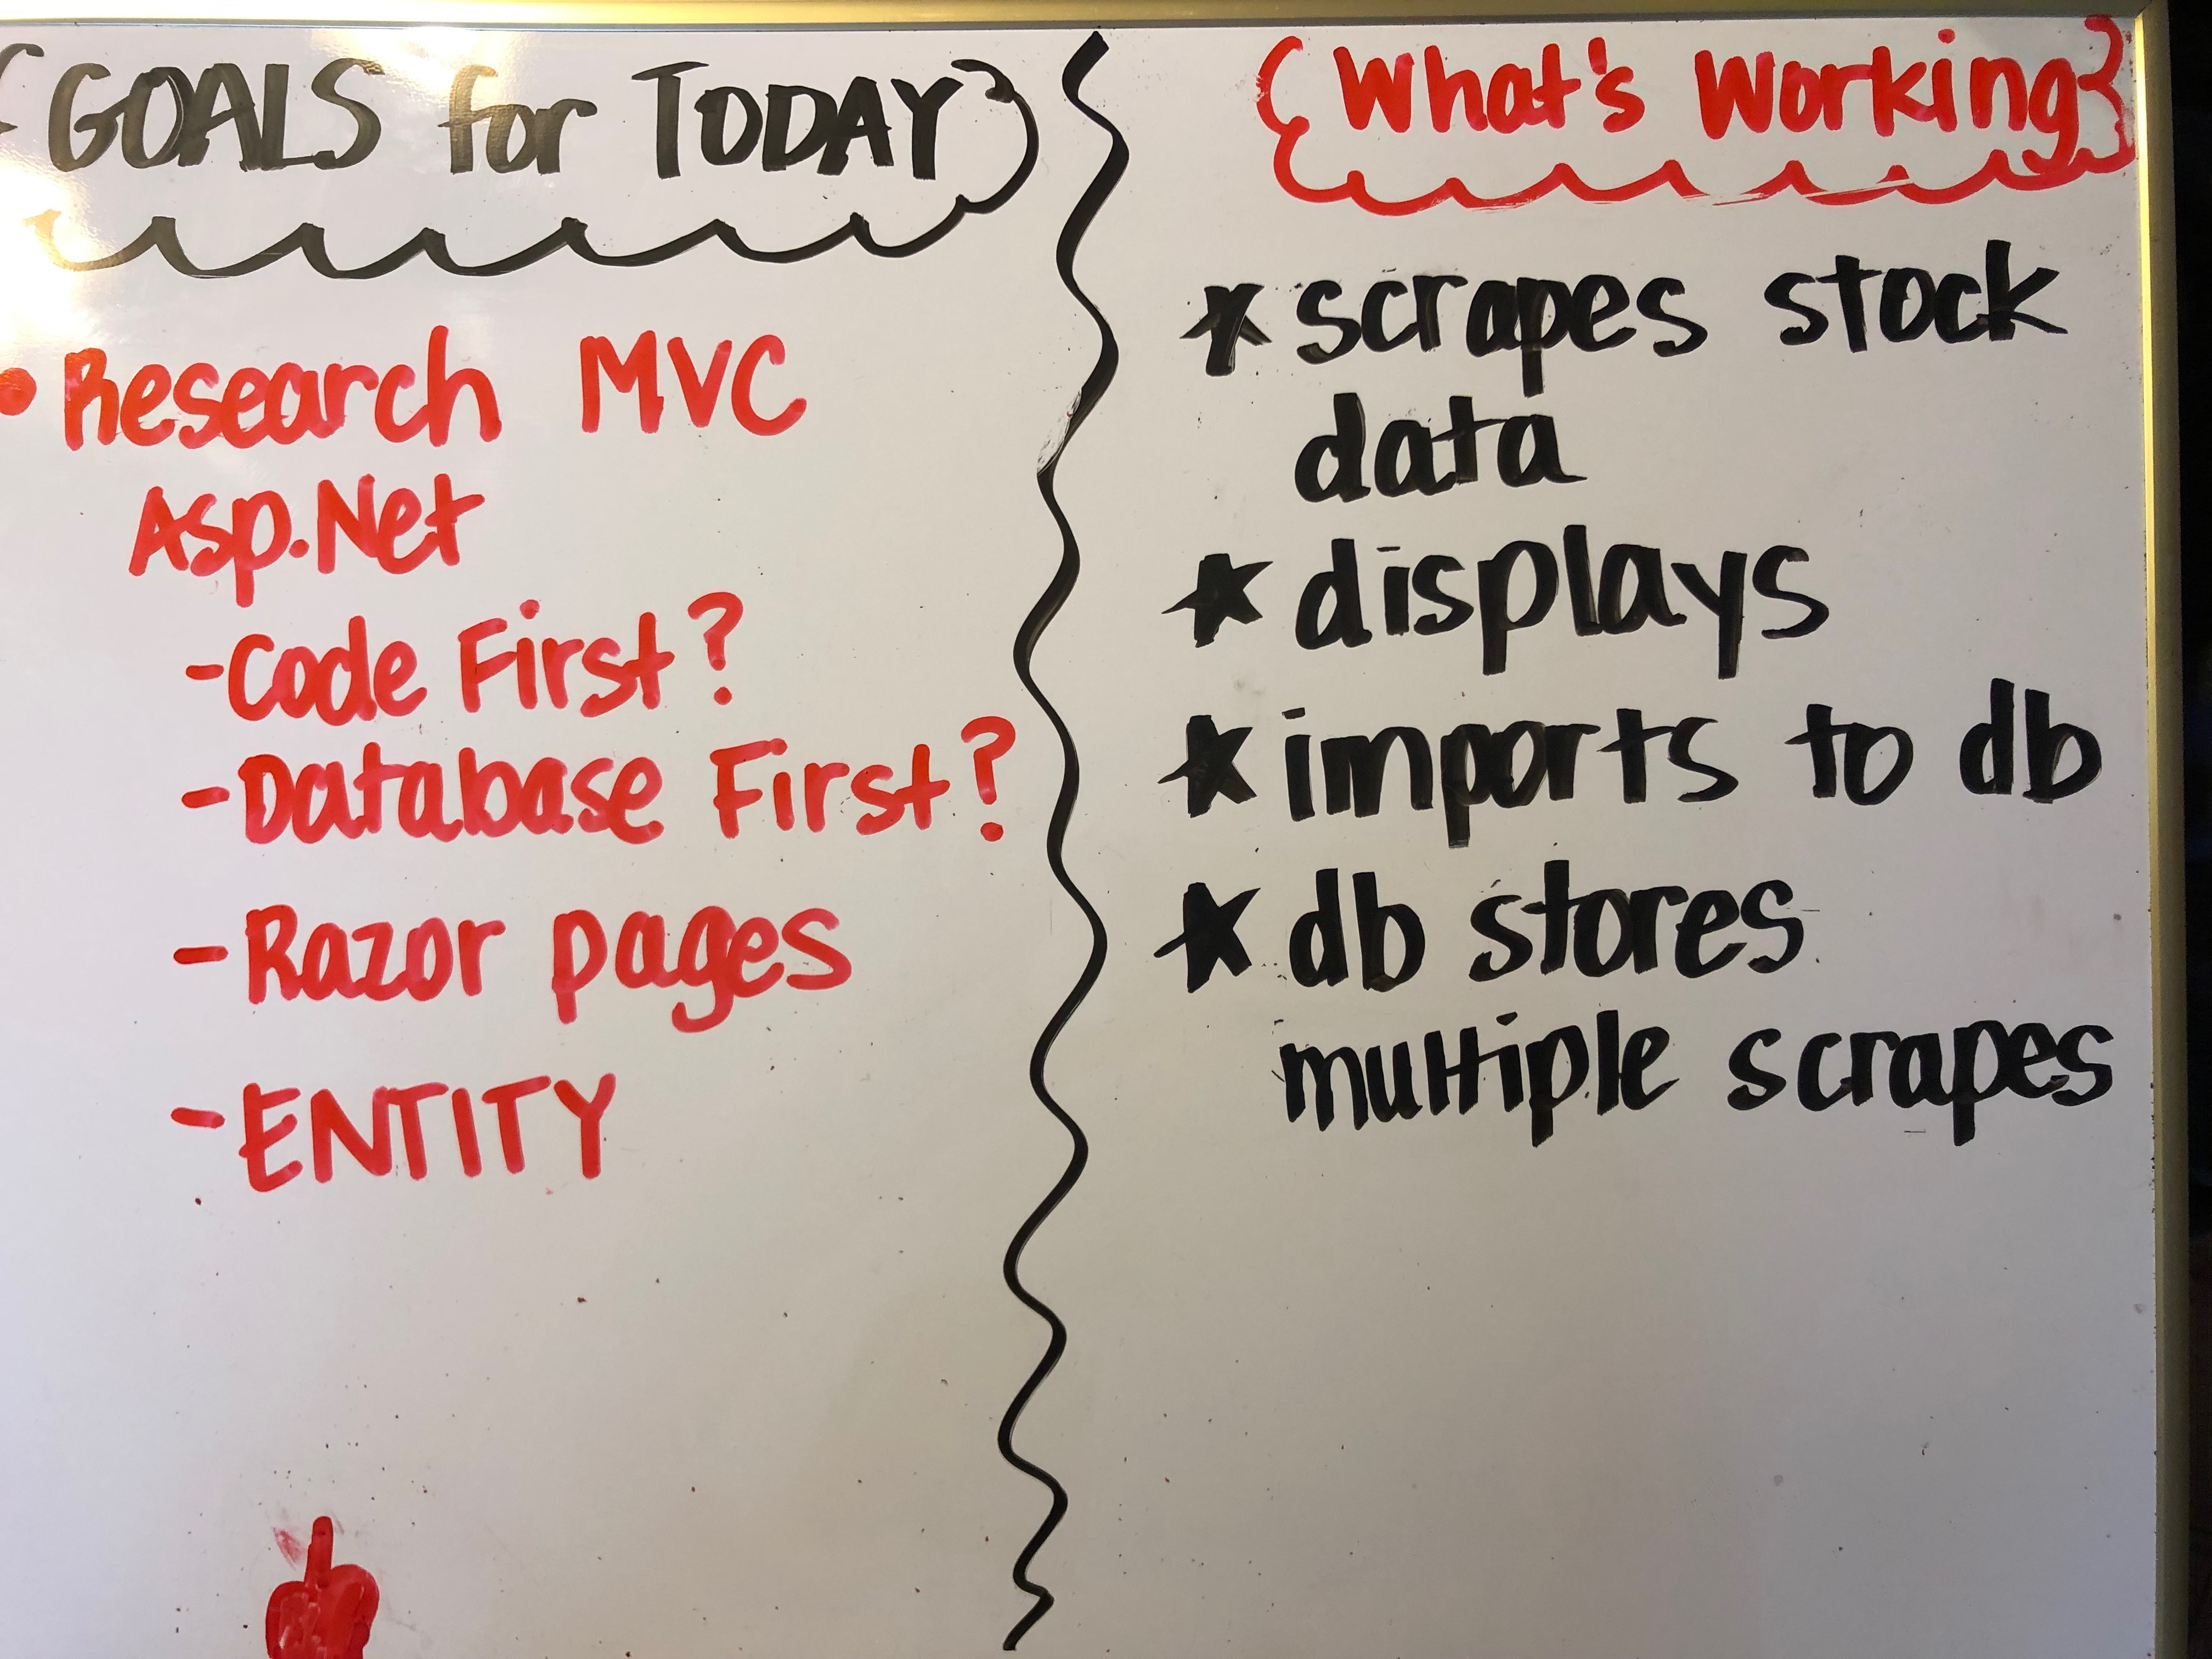 {GOALS for TODAY}
• Research MVC
Asp.Net
- Code First?
- Database First?
- Razor pages
- ENTITY
{What's Working}
* scrapes stock
data
* displays
* imports to db
* db stores
multiple scrapes